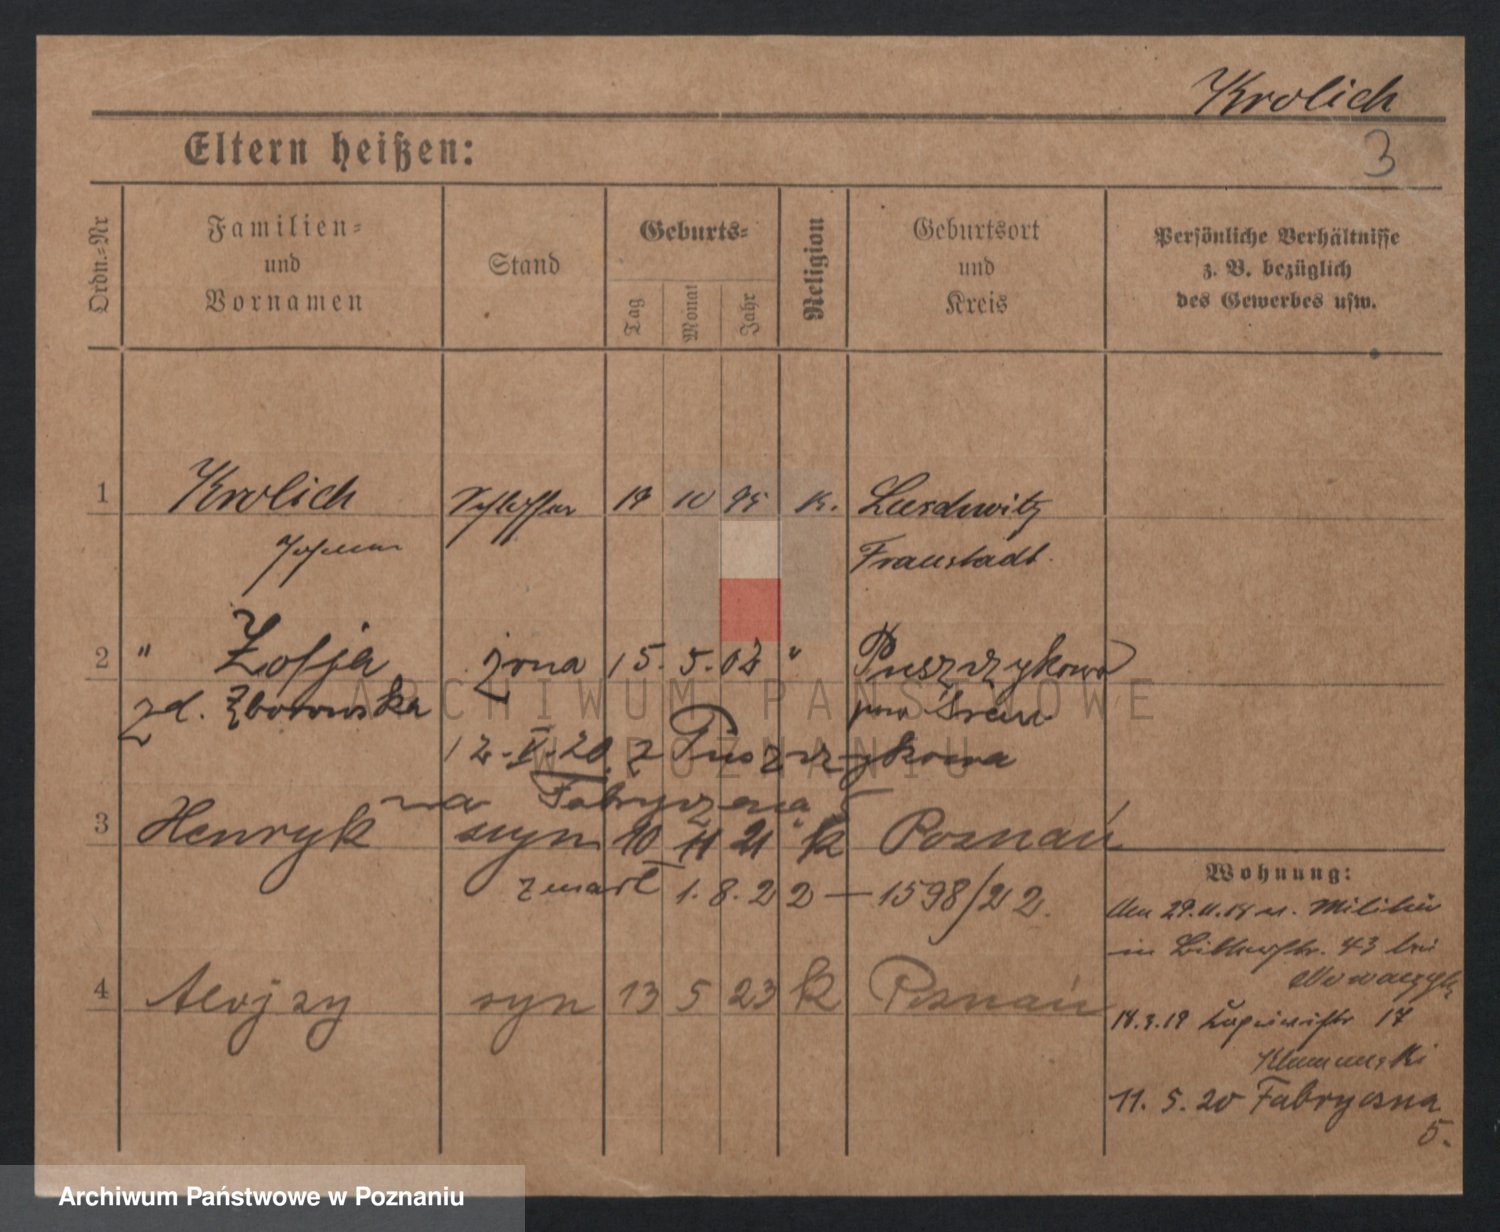 Krolich
3
Eltern heißen:
Ordn.=Nr
Familien=
und
Vornamen
Stand
Geburts=
Tag
Monat
Jahr
Religion
Geburtsort
und
Kreis
Persönliche Verhältnisse
z. B. bezüglich
des Gewerbes usw.
1 Krolich Schlosser 10 K. Luschwitz
Johann Fraustadt.
2 " Zofja żona 15. 5. " Puszczykowo
zd. Zborowska pow Śrem
12.V.20. z Puszczykowa
na Fabryczna 5
3 Henryk syn 10 11 21 k Poznań
zmarł 1.8.22 — 1598/22.
4 Alojzy syn 13 5 23 k Poznań
Wohnung:
den 29.11.18 v. Militär
in 43 bei
18.3.19 17
11. 5. 20 Fabryczna
5.
ARCHIWUM PAŃSTWOWE
W POZNANIU
Archiwum Państwowe w Poznaniu